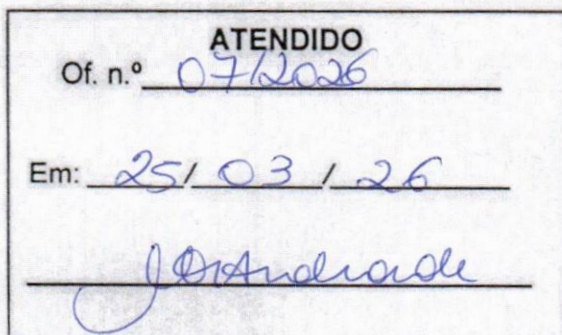 ATENDIDO
Of. n.º 07/2026
Em: 25/ 03 / 26
Andrade